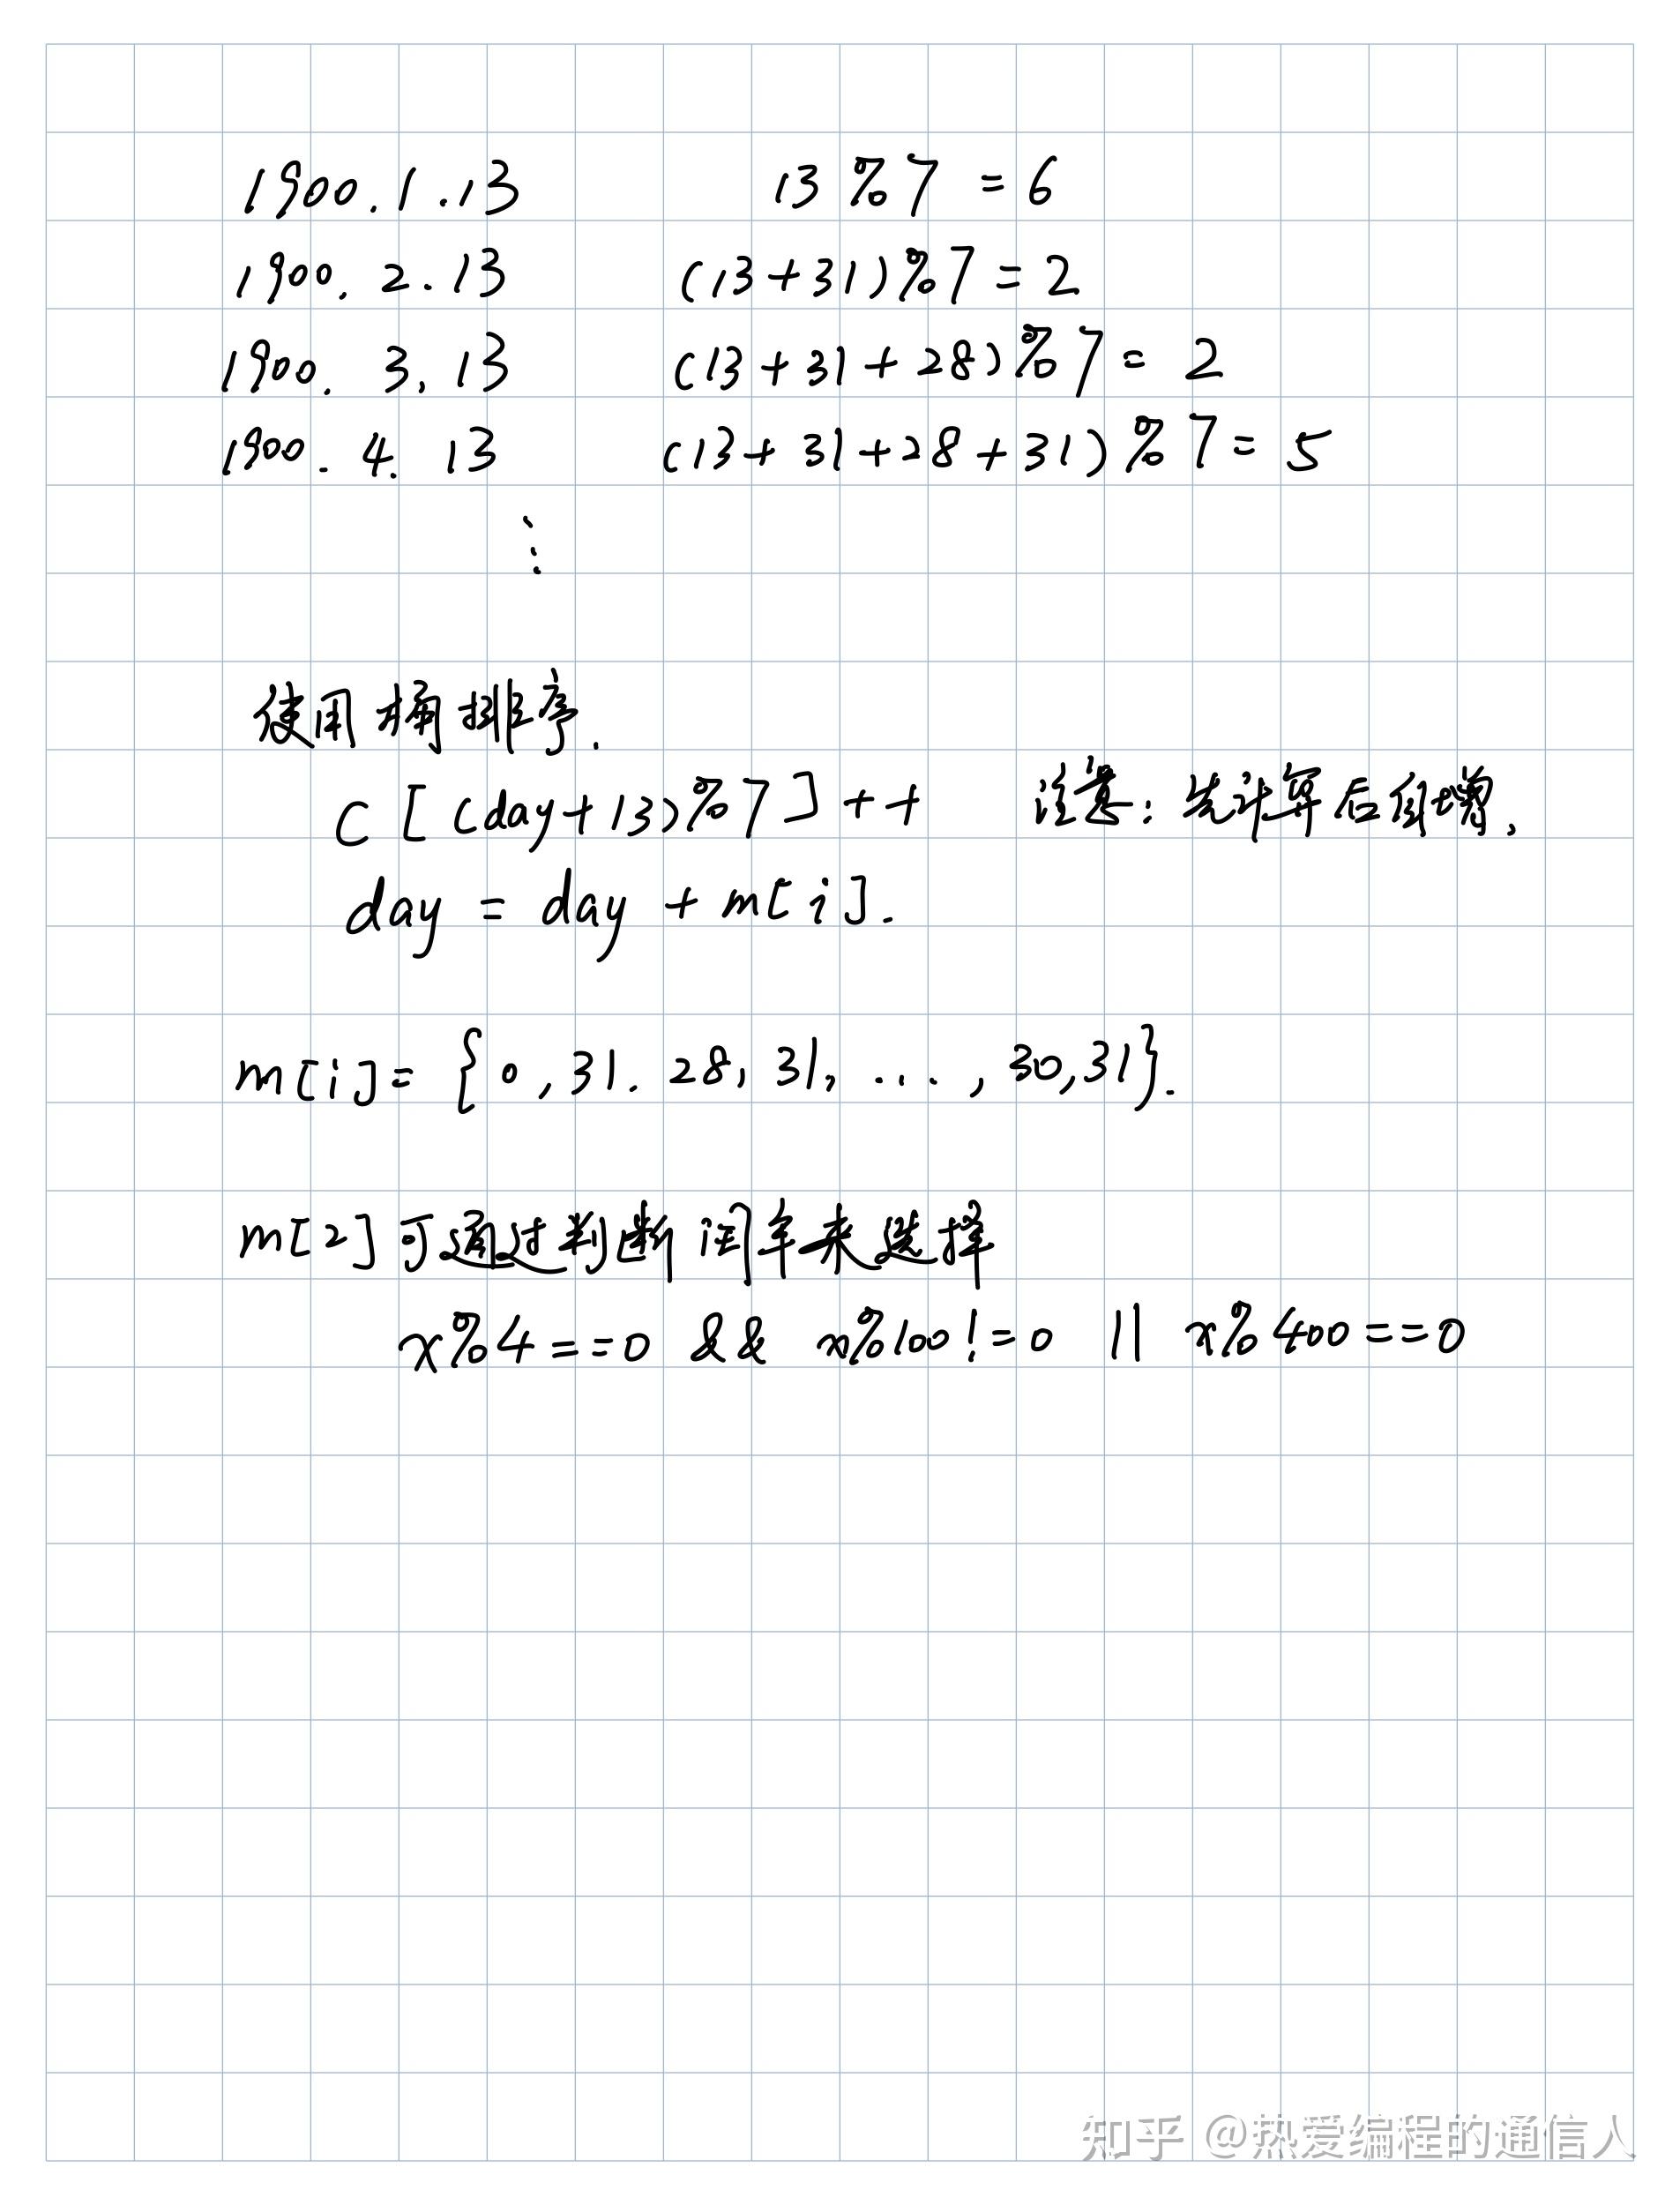 1900.1.13 13%7=6
1900.2.13 (13+31)%7=2
1900.3.13 (13+31+28)%7=2
1900.4.13 (13+31+28+31)%7=5
⋮
使用桶排序.
C[(day+13)%7]++ 注意:先计算后自增.
day=day+m[i].
m[i]={0,31.28,31,...,30,31}.
m[2]可通过判断闰年来选择
x%4==0 && x%100!=0 || x%400==0
知乎 @热爱编程的通信人